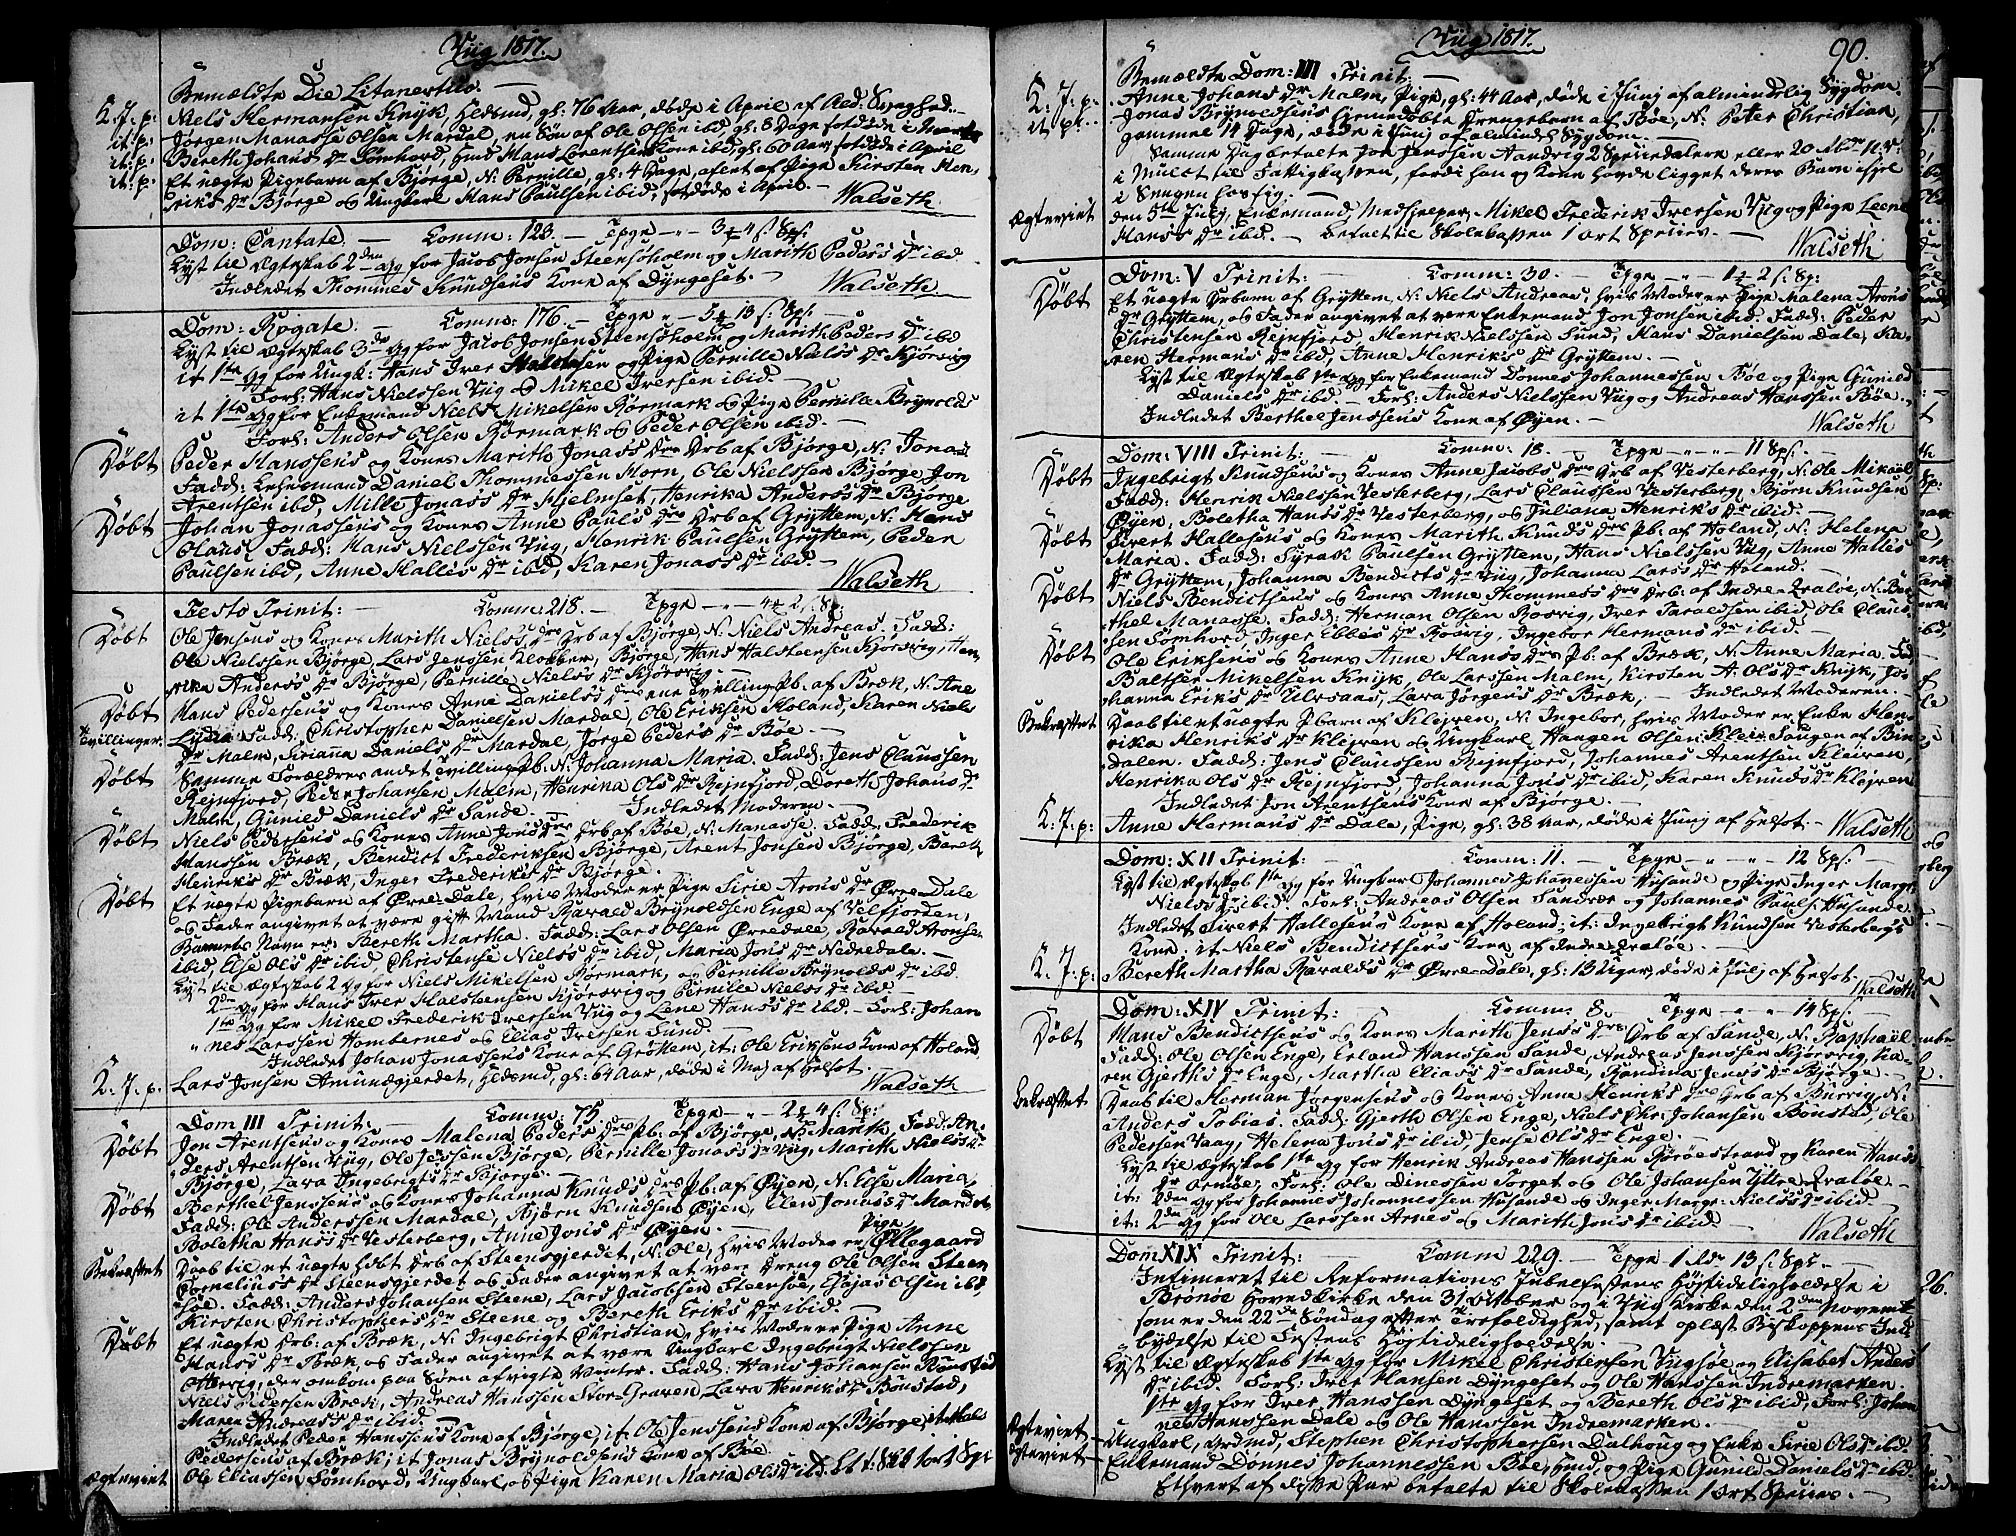 Viig 1817.
Bemeldte Die Litanertils. —
K. J: p: Niels Hermansen Knyk, Huusmd, gl: 76 Aar, døde i April af
it: p: Jørgen Manasse Olsen Mardal, en Søn af Ole Olsen ibd, gl: 8 Dage
it: p: Bereth Johans Dr Sømhord, Hmd Hans Lorentsens Kone ibd, gl: 60 Aar, døde i April
it: p: Et uægte Pigebarn af Bjørge, N: Pernille, gl: 4 Dage, afent af Pige Kirsten Hen-
riks Dr Bjørge og Ungkarl Hans Paulsen ibid, døde i April. — Walseth
Dom: Cantate. — Comm: 123. — Tpge — " — 3 4 ß Sp:
Lyst til Ægteskab 2den Gg for Jacob Jonsen Steensøholm og Marith Peders Dr ibd
Indledet Thommes Knudsens Kone af Dyngeset. — Walseth
Dom: Rogate. — Comm: 176 — Tpge " — 5 13 ß Sp: —
Lyst til Ægteskab 3die Gg for Jacob Jonsen Steensøholm og Marith Peders Dr ibd
it 1ste Gg for Ungk: Hans Iver Halsteensen og Pige Pernille Niels's Dr Kjørsvig
Forl: Hans Nielssen Viig og Mikel Iversen ibid. —
it 1ste Gg for Enkemand Niels Mikelsen Rørmark og Pige Pernille Brynolds
Forl: Anders Olsen Rørmark og Peder Olsen ibid. —
Døbt Peder Hanssen's og Kones Marith Jonas's Drs Drb af Bjørge, N: Jonas
Fadd: Lehnsmand Daniel Thommessen Horn, Ole Nielssen Bjørge, Jon
Arentsen ibid, Mille Jonas's Dr Hjelmset, Henrika Anders's Dr Bjørge
Døbt Johan Jonassens og Kones Anne Pauls Drs Drb af Gryttem, N: Hans
Olaus, Fadd: Hans Nielssen Viig, Henrik Paulsen Gryttem, Peder
Paulsen ibd, Anne Halles Dr ibd, Karen Jonas's Dr ibd. — Walseth
Festo Trinit: — Comm: 218. — Tpge — " — 4 2 ß Sp.
Døbt Ole Jensens og Kones Marith Niels's Drs Drb af Bjørge, N: Niels Andreas. Fadd:
Ole Nielssen Bjørge, Lars Jenssen Klokker, Bjørge, Hans Halsteensen Kjørsvig, Hen-
rika Anders's Dr Bjørge, Pernille Niels's Dr Kjørsvig. —
Døbt Hans Pedersens og Kones Anne Daniels Drs ene Tvillinge Pb: af Bræk, N: Ane
Tvillinger. Lydia. Fadd: Christopher Danielsen Mardal, Ole Eriksen Holand, Karen Niels
Dr Malm, Siriana Daniels Dr Mardal, Jørge Peders Dr Bøe. —
Døbt Samme Forældres andet Tvilling Pb: N: Johanna Maria. Fadd: Jens Claussen
Rejnfjord, Peder Johansen Malm, Henrika Ols Dr Rejnfjord, Doreth Johans Dr
Malm, Gunild Daniels Dr Sande. — Indledet Moderen. —
Døbt Niels Pedersens og Kones Anne Jons Drs Drb af Bøe, N: Manasse. Fadd: Frederik
Hanssen Bræk, Bendict Frederiksen Bjørge, Arent Jonsen Bjørge, Bereth
Henriks Dr Bræk, Inger Frederiks Dr Bjørge. —
Døbt Et uægte Pigebarn af Øvre-Dale, hvis Moder er Pige Sirie Arons Dr Øvre-Dale
og Fader angivet at være gift Mand Rarald Brynoldsen Enge af Velfjorden,
Barnets Navn er: Bereth Martha. Fadd: Lars Olsen Øvredale, Rarald Aronsen
ibid, Else Ols Dr ibid, Christense Niels's Dr ibid, Maria Jons Dr Nedredale. —
Lyst til Ægteskab 2 Gg for Niels Mikelsen Rørmark, og Pernille Brynolds Dr ibd.
2den Gg for Hans Iver Halsteensen Kjørsvig og Pernille Niels's Dr ibid. —
1ste Gg for Mikel Frederik Iversen Viig og Lene Hans's Dr ibd. — Forl: Johan-
nes Larssen Hombernes og Elias Iversen Sund. —
Indledet Johan Jonassens Kone af Gryttem, it: Ole Eriksens Kone af Holand
K. J. p. Lars Jonsen Amundsgjerdet, Huusmd, gl: 64 Aar, døde i Maj af Helsot. — Walseth
Dom III Trinit: — Comm: 75. — Tpge — " — 2 4 ß Sp:
Døbt Jon Arentsens og Kones Malena Peders Drs Pb: af Bjørge, N: Marith. Fadd: An-
ders Arentsen Viig, Ole Jenssen Bjørge, Pernille Jonas's Dr Viig, Marith Niels's Dr
Bjørge, Lara Ingebrigts Dr Bjørge. —
Døbt Berthel Jenssens og Kones Johanna Knuds Drs Pb: af Øyen, N: Else Maria,
Fadd: Ole Anderssen Mardal, Bjørn Knudsen Øyen, Elen Jonas's Dr Mardal
Boletha Hans's Dr Vesterberg, Anne Jons Dr Øyen. —
Bekræftet Daab til et uægte hdbt Drb af Steensgjerdet, N: Ole, hvis Moder er Pige Ollegaard
Cornelius's Dr Steensgjerdet og Fader angivet at være Dreng Ole Olsen Steen-
søe. Fadd: Anders Johansen Steene, Lars Jacobsen Steensøe, Esajas Olsen ibd,
Kirsten Christophers Dr Steene og Bereth Eriks Dr ibid. —
Døbt Et uægte Drb: af Bræk, N: Ingebrigt Christian, hvis Moder er Pige Anne
Hans's Dr Bræk, og Fader angivet at være Ungkarl Ingebrigt Nielssen
Otterøig, der omkom paa Søen afvigte Vinter. Fadd: Hans Johansen Bønstad
Niels Pedersen Bræk, Andreas Hanssen Stor-Graven, Lara Henriks Dr Bønstad,
Maren Andreas's Dr ibid. —
Indledet Peder Hanssens Kone af Bjørge, it: Ole Jenssens Kone af Bjørge,
Pedersens af Bræk; it Jonas Brynoldsens Kone af Bøe.
Ægteviet Ole Eliassen Sømhord, Ungkarl, og Pige Karen Maria Ols Dr ibid.

Viig 1817. 90.
Bemældte Dom: III Trinit: —
K: J: p: Anne Johans Dr Malm, Pige, gl: 44 Aar, døde i Junj af almindelig Sygdom.
it pt. Jonas Brynoldsens hiemmedøbte Drengebarn af Bøe, N: Peter Christian,
gammel 14 Dage, døde i Junj af almindel: Sygdom. —
Samme Dag betalte Jon Jenssen Aandvig 2 Speciedalere eller 20 Nbdr N. V:
i Mulct til Fattigkassen, fordi han og Kone havde ligget deres Barn ihjel
i Sengen hos sig. —
Ægteviet den 5te Julj, Enkemand, Medhjelper, Mikel Frederik Iversen Viig og Pige Leene
Hans's Dr ibd. — Betalt til Skolekassen 1 ort Species. — Walseth
Dom: V Trinit: — Comm: 30. — Tpge — " — 1 2 ß: Sp:
Døbt Et uægte Drbarn af Gryttem, N: Niels Andreas, hvis Moder er Pige Malena Arons
Dr Gryttem, og Fader angivet at være Enkemand Jon Jonsen ibid. Fadd: Peder
Christensen Rejnfjord, Henrik Nielssen Sund, Hans Danielsen Dale, Ka-
ren Hermans Dr ibd, Anne Henriks Dr Gryttem. —
Lyst til Ægteskab 1ste Gg for Enkemand Donnes Johannessen Bøe og Pige Gunild
Daniels Dr ibid — Forl: Anders Nielssen Viig og Andreas Hanssen Bøe.
Indledet Berthel Jenssens Kone af Øyen. — Walseth
Dom: VIII Trinit: — Comm: 18. — Tpge — " — " — 11 Sps: —
Døbt Ingebrigt Knudsens og Kones Anne Jacobs Drs Drb af Vesterberg, N: Ole Mikael,
Fadd: Henrik Nielssen Vesterberg, Lars Claussen Vesterberg, Bjørn Knudsen
Øyen, Boletha Hans's Dr Vesterberg, og Juliana Henriks Dr ibid. —
Døbt Sivert Hallesens og Kones Marith Knuds Drs Pb: af Holand, N: Helena
Maria. Fadd: Syrak Paulsen Gryttem, Hans Nielssen Viig, Anne Halles
Dr Gryttem, Johanna Bendicts Dr Viig, Johanna Lars's Dr Holand. —
Døbt Niels Bendictsens og Kones Anne Thommes's Drs Drb: af Indre-Kvaløe, N: Ber-
thel Manasse. Fadd: Herman Olsen Rosvig, Iver Taraldsen ibid, Ole Claus-
sen Sømhord, Inger Ebbes Dr Rosvig, Ingebor Hermans Dr ibid. —
Døbt Ole Eriksens og Kones Anne Hans's Drs Pb: af Bræk, N: Anne Maria. Fad:
Baltser Mikelsen Knyk, Ole Larssen Malm, Kirsten A: Ols Dr Knyk, Jo-
hanna Eriks Dr Ulvsaas, Lara Jørgens Dr Bræk. — Indledet Moderen. —
Bekræftet Daab til et uægte Pbarn af Klejven, N: Ingebor, hvis Moder er Enke Hen-
rika Henriks Dr Klejven og Ungkarl Haagen Olsen Klei- Taugen af Bin-
dalen. Fadd: Jens Claussen Rejnfjord, Johannes Arentsen Kleiven,
Henrika Ols Dr Rejnfjord, Johanna Jons Dr ibid, Karen Knuds Dr Klejven
Indledet Jon Arentsens Kone af Bjørge. —
K: J: p: Anne Hermans Dr Dale, Pige, gl: 38 Aar, døde i Junj af Helsot. — Walseth
Dom: XII Trinit: — Comm: 11. — Tpge — " — " — 12 Sps: —
Lyst til Ægteskab 1ste Gg for Ungkarl Johannes Johannessen Husande og Pige Inger Margr:
Niels's Dr ibid. Forl: Andreas Olsen Sandvær og Johannes Pauls: Husande.
Indledet Sivert Hallesens Kone af Holand; it: Ingebrigt Knudsen Vesterbergs
Kone, it Niels Bendictsens Kone af Indre-Kvaløe. —
K. J: p: Bereth Martha Raralds Dr Øvre-Dale, gl: 13 Uger, døde i Julj af Helsot. Walseth
Dom: XIV Trinit: — Comm: 8. — Tpge " — " — 14 Sps: —
Døbt Hans Bendictsens og Kones Marith Jens's Drs Drb af Sande, N: Raphaël
Fadd: Ole Olsen Enge, Erland Hanssen Sande, Andreas Jenssen Kjørsvig, Ka-
ren Gjerths Dr Enge, Martha Elias's Dr Sande, Randina Jens's Dr Bjørge. —
Bekræftet Daab til Herman Jørgensens og Kones Anne Henriks Drs Drb af Burvig, N:
Anders Tobias. Fadd: Gjerth Olsen Enge, Niels Chr: Johansen Bønstad, Ole
Pedersen Vaag, Helena Jons Dr ibid, Jense Ols Dr Enge. —
Lyst til Ægteskab 1ste Gg for Henrik Andreas Hanssen Torøestrand og Karen Hans's
Dr Ormøe, Forl: Ole Dinessen Torget og Ole Johansen Yttre-Kvaløe. —
it: 2den Gg for Johannes Johannessen Husande og Inger Margr: Niels's Dr ibid.
it: 2den Gg for Ole Larssen Arnes og Marith Jons Dr ibid. — Walseth
Dom XIX Trinit: — Comm 229. — Tpge 1 Rdr 13 ß Sps. —
Intimeret til Reformations Jubelfestens Høytideligholdelse i
Brønøe Hovedkirke den 31 October og i Viig Kirke den 2den Novemb
som er den 22de Søndag efter Trefoldighed, samt oplæst Biskoppens Ind-
bydelse til Festens Høytideligholdelse. —
Lyst til Ægteskab 1ste Gg for Mikel Christensen Viigsøe og Elisabet Anders's
Dr ibid. Forl: Iver Hansen Dyngeset og Ole Hanssen Indremarken. —
1ste Gg for Iver Hanssen Dyngeset og Bereth Ols Dr ibid, Forl: Johan-
nes Hanssen Dale og Ole Hanssen Indremarken. —
Ægteviet — Ungkarl, Grdmd, Stephen Christophersen Dalhoug og Enke Sirie Ols Dr ibd.
Ægteviet — Enkemand Donnes Johannessen Bøe, Hmd, og Pige Gunild Daniels Dr ibd.
Ethvert af disse Par betalte til Skolekassen 1 ort Species. —